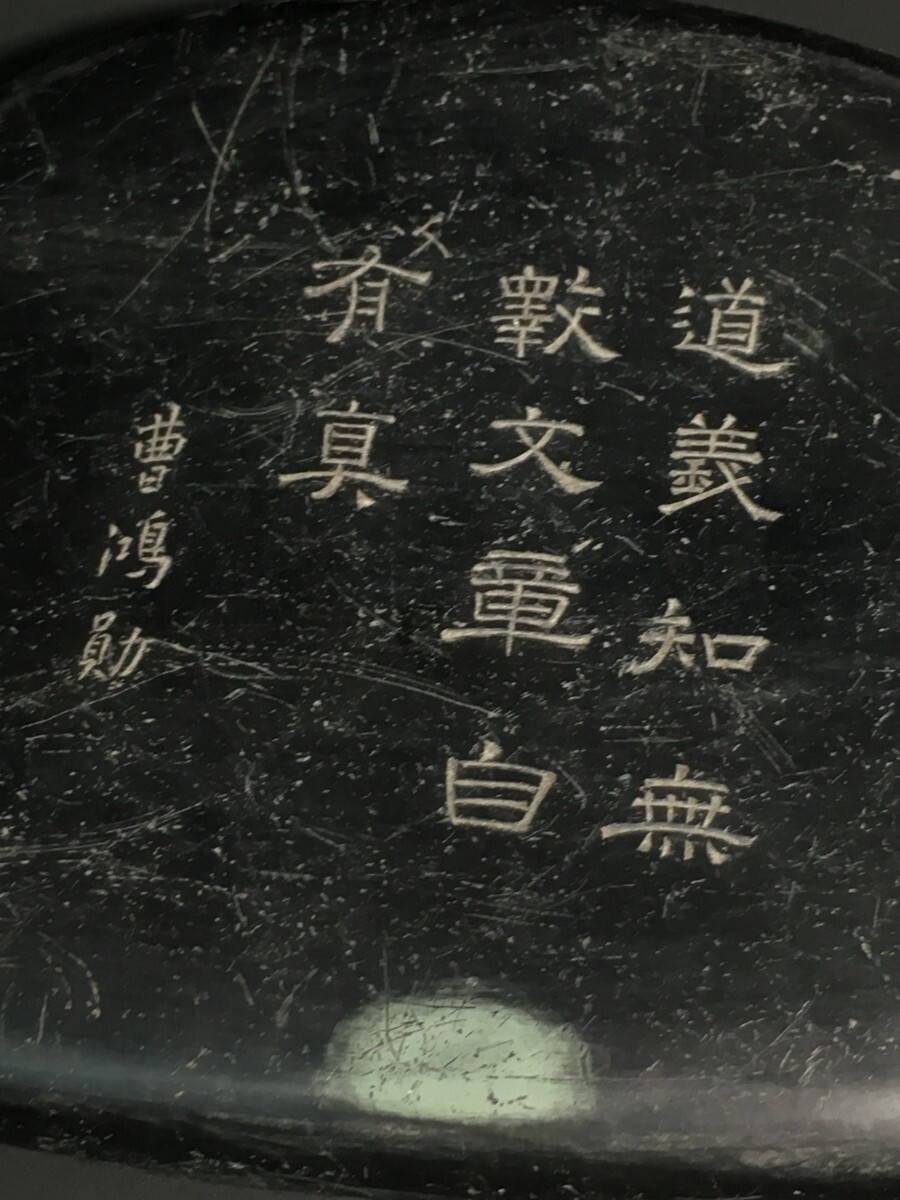 道義知無
斁文章自
有真
曹鴻勛